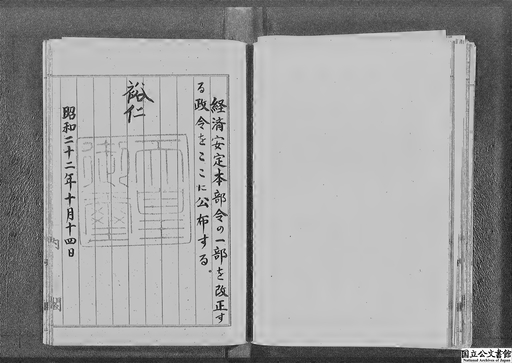 経済安定本部令の一部を改正す
る政令をここに公布する。
裕仁
天皇
御璽
昭和二十二年十月十四日
内閣
国立公文書館
National Archives of Japan